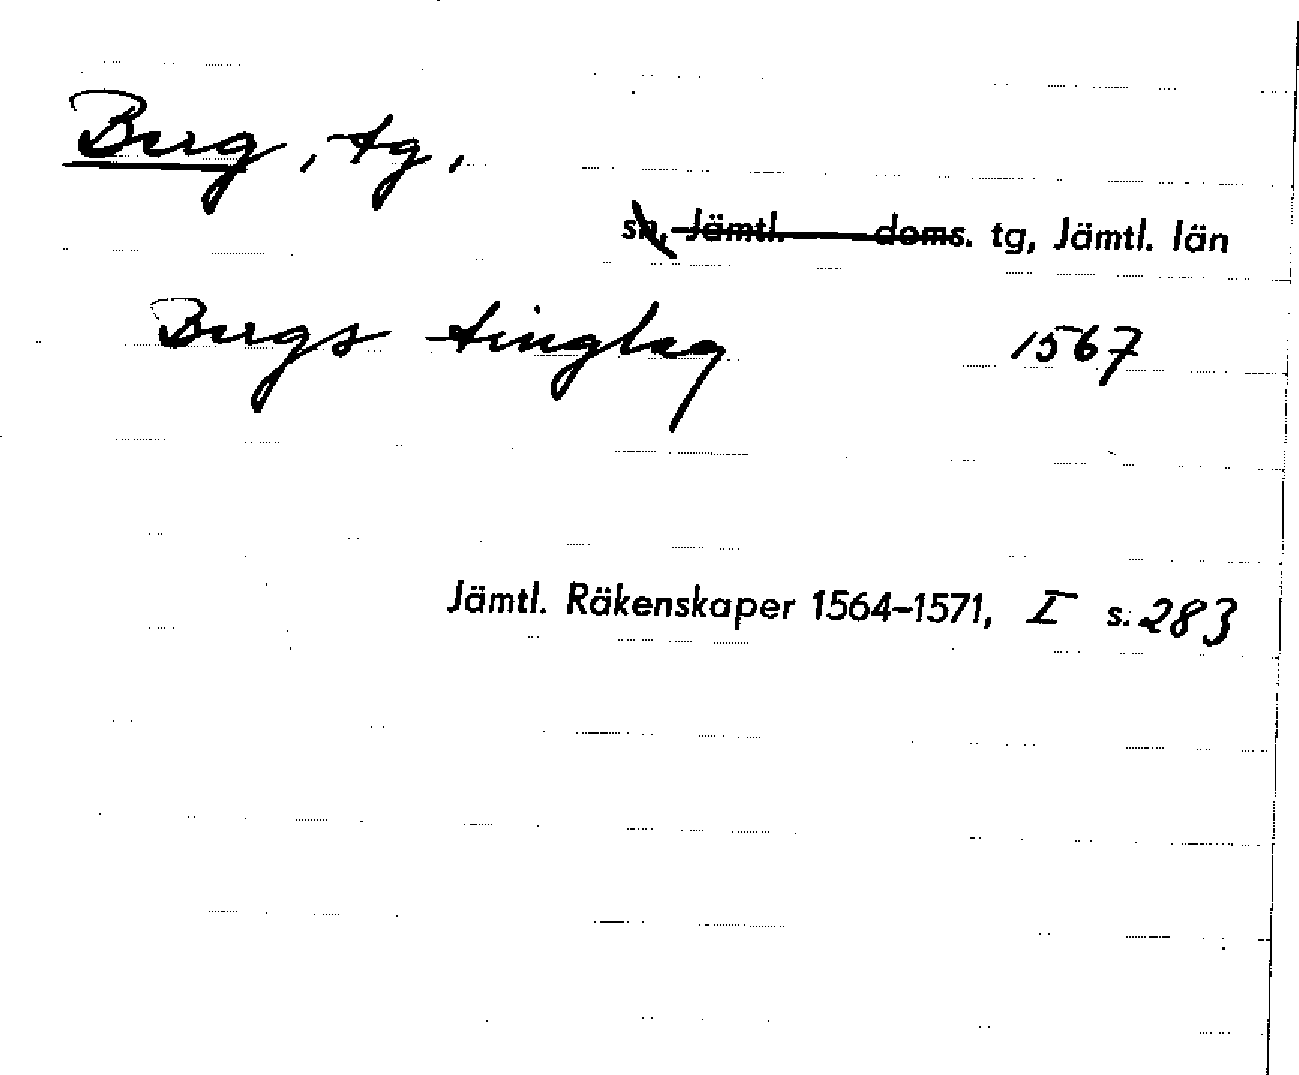 Berg, tg.
sn, Jämtl. doms. tg, Jämtl. län
Bergs tinglag 1567
Jämtl. Räkenskaper 1564–1571, I s. 283